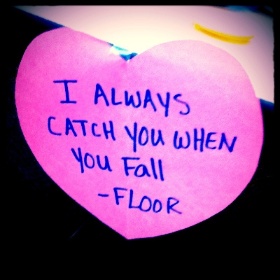 I ALWAYS
CATCH YOU WHEN
YOU Fall
-FLOOR